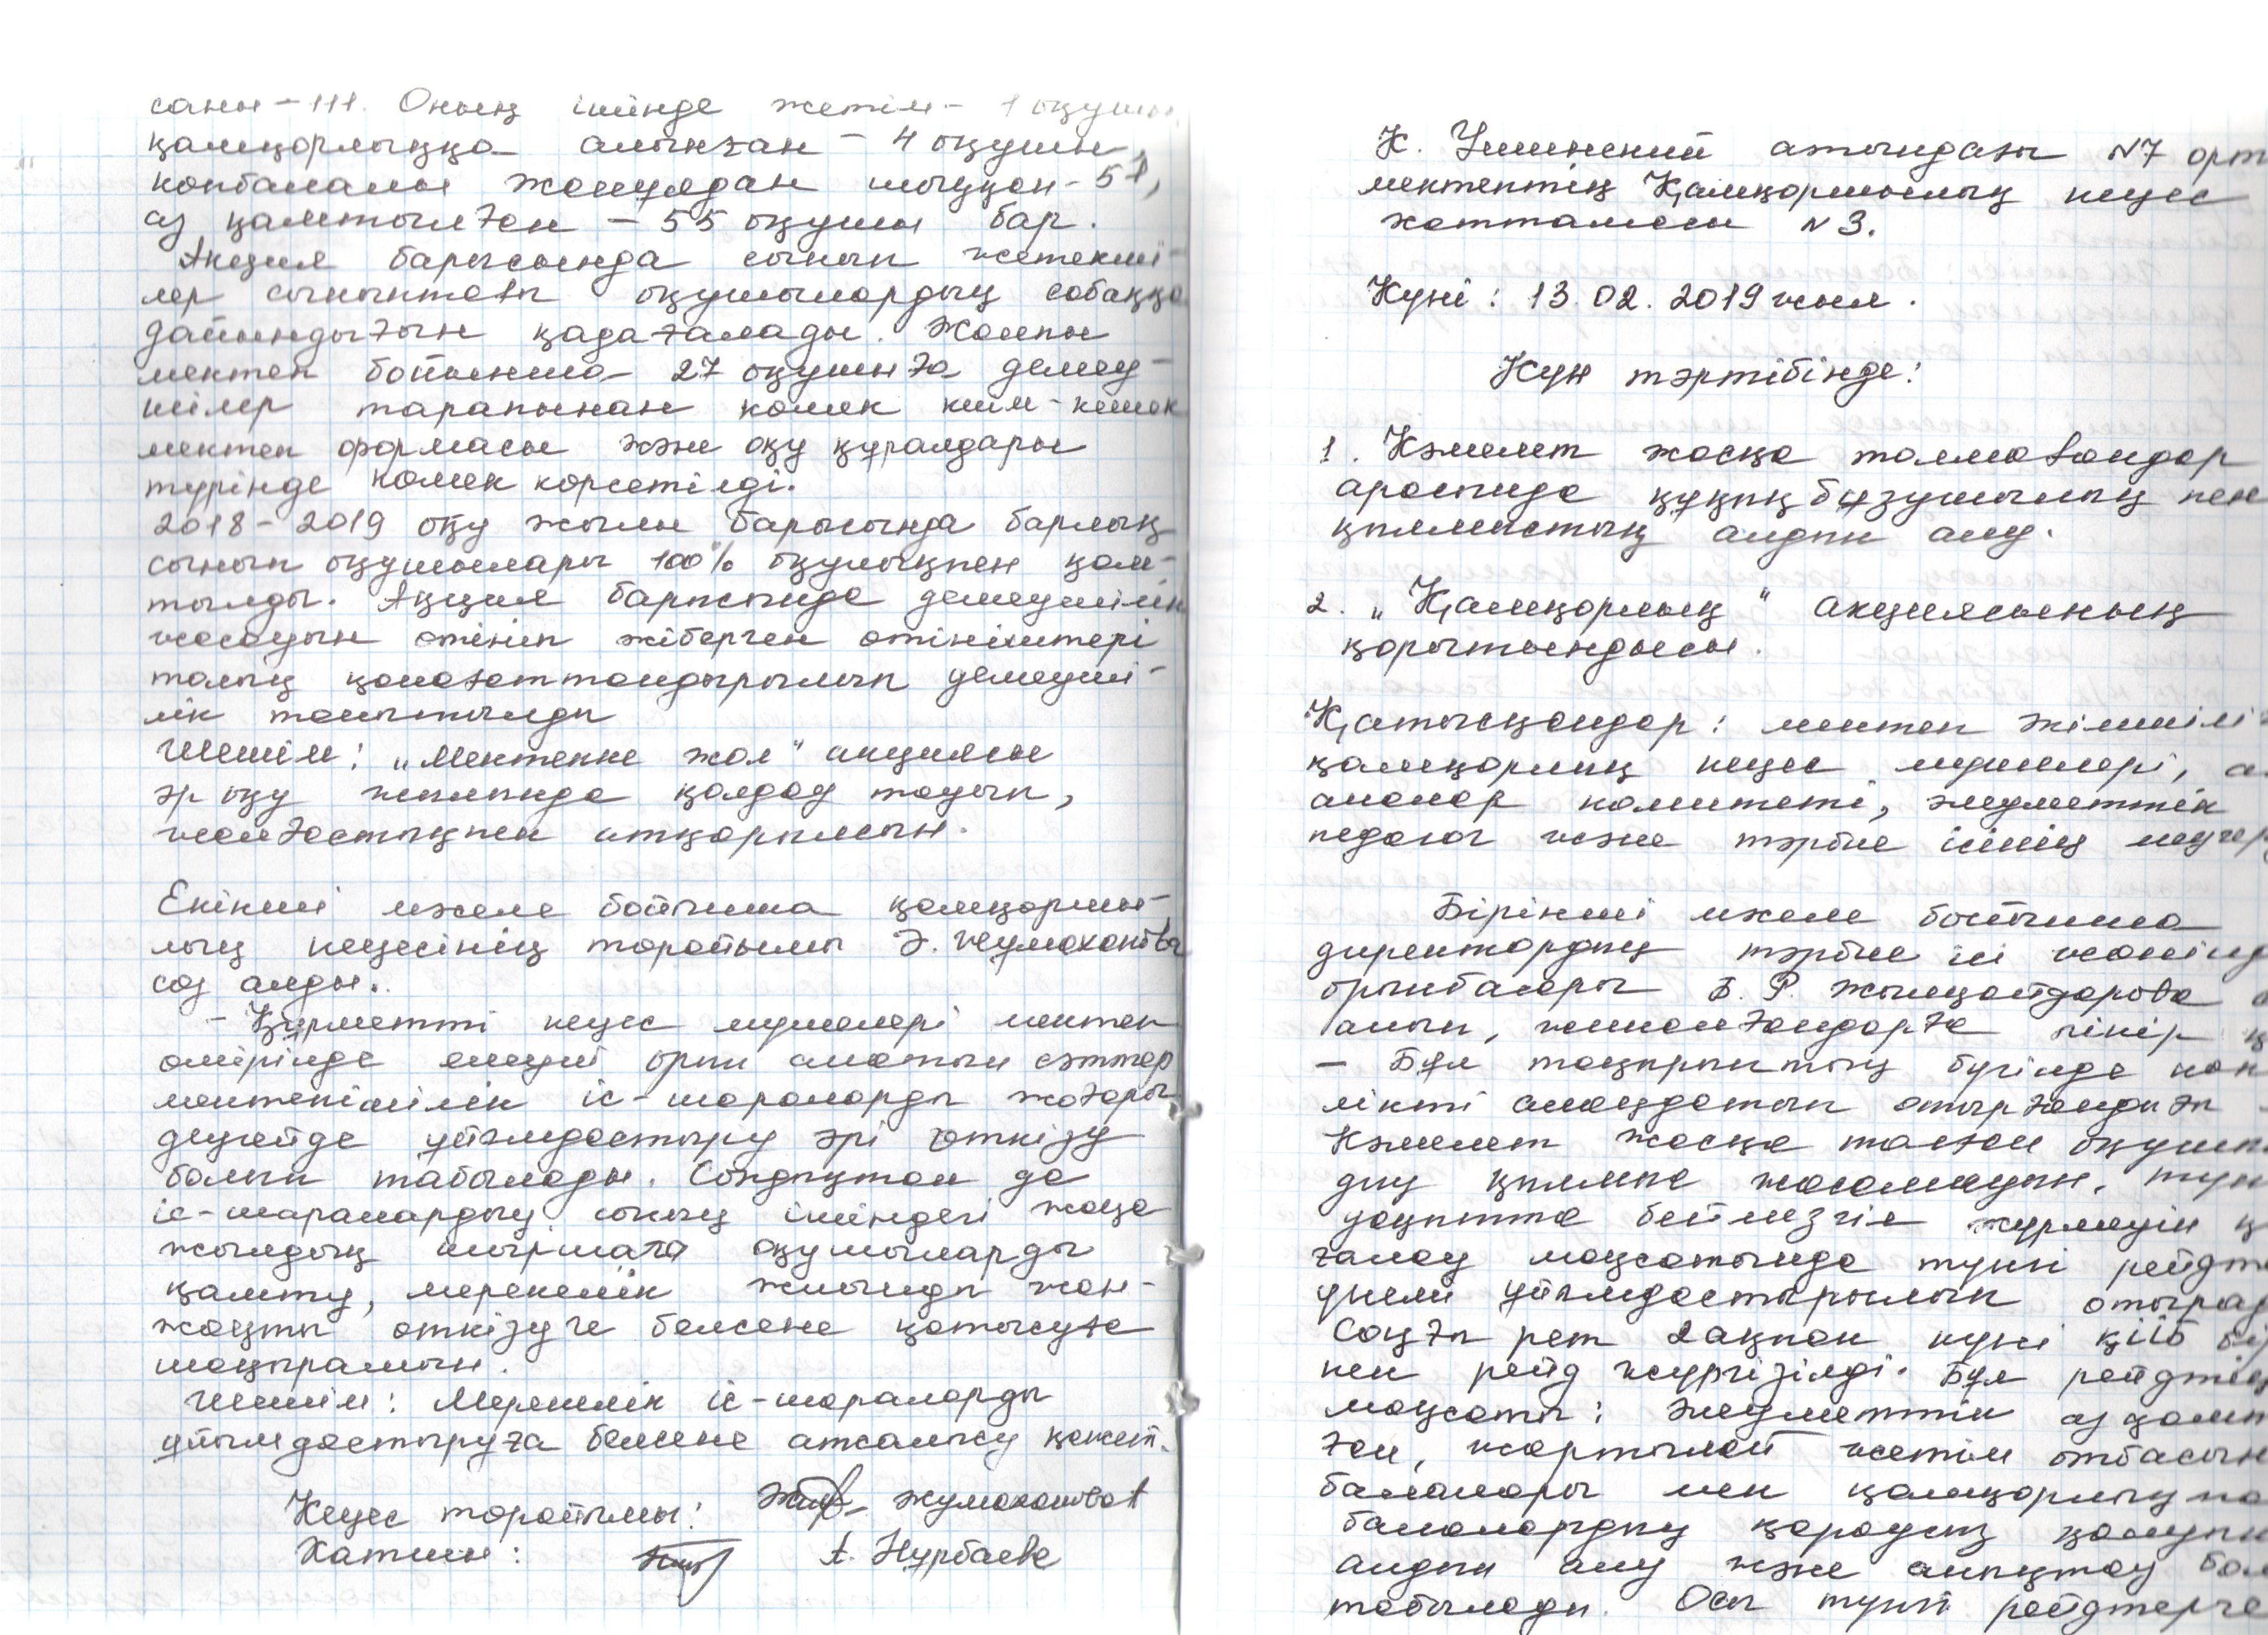 саны – 111. Оның ішінде жетім – 1 оқушы
қамқорлыққа алынған – 4 оқушы,
көпбалалы жанұядан шыққан – 51,
аз қамтылған – 55 оқушы бар.
Акция барысында сынып жетекші-
лер сыныптағы оқушылардың сабаққа
дайындығын қадағалады. Жалпы
мектеп бойынша 27 оқушыға демеу-
шілер тарапынан көмек киім-кешек
мектеп формасы және оқу құралдары
түрінде көмек көрсетілді.
2018 – 2019 оқу жылы барысында барлық
сынып оқушылары 100% оқулықпен қам-
тылды. Акция барысында демеушілік
жасауын өтініп жіберген өтініштері
толық қанағаттандырылып демеуші-
лік танытылды
Шешім: „Мектепке жол" акциясы
әр оқу жылында қолдау тауып,
жалғастықпен атқарылсын.
Екінші мәселе бойынша қамқоршы-
лық кеңесінің төрайымы Э. Жумаханова
сөз алды.
– Құрметті кеңес мүшелері мектеп
өмірінде елеулі орын алатын сәттер
мектепішілік іс-шараларды жоғары
деңгейде ұйымдастыру әрі өткізу
болып табылады. Сондықтан да
іс-шаралардың соның ішіндегі жаңа
жылдық шыршаға оқушыларды
қамту, мерекелік жиынды жан-
жақты өткізуге белсене қатысуға
шақырамын.
Шешім: Мерекелік іс-шараларды
ұйымдастыруға белсене атсалысу қажет.
Кеңес төрайымы: Жумаханова
Хатшы: А. Нурбаева
К. Ушинский атындағы №7 орт
мектептің Қамқоршылық кеңес
хаттамасы №3.
Күні: 13.02.2019 жыл.
Күн тәртібінде:
1. Кәмелет жасқа толмағандар
арасында құқық бұзушылық пен
қылмыстың алдын алу.
2. „Қамқорлық" акциясының
қорытындысы.
Қатысқандар: мектеп әкімшілі
қамқорлық кеңес мүшелері, а
аналар комитеті, әлеуметтік
педагог және тәрбие ісінің меңгер
Бірінші мәселе бойынша
директордың тәрбие ісі жөнінд
орынбасары Б. Р. Жылқайдарова
алып, жиналғандарға пікір қ
– Бұл тақырыптың бүгінде көп
лікті алаңдатып отырғандығы –
Кәмелет жасқа толған оқушы
дың қылмыс жасамауын, түн
уақытта беймезгіл жүрмеуін қ
ғалау мақсатында түнгі рейдт
үнемі ұйымдастырылып отырад
Соңғы рет 2 ақпан күні ҚІІБ бір
пен рейд жүргізілді. Бұл рейдтің
мақсаты: Әлеуметтік аз қамт
ған, жартылай жетім отбасын
балалары мен қамқорлықта
балалардың қараусыз қалуын
алдын алу және анықтау бол
табылады. Осы түнгі рейдтерге